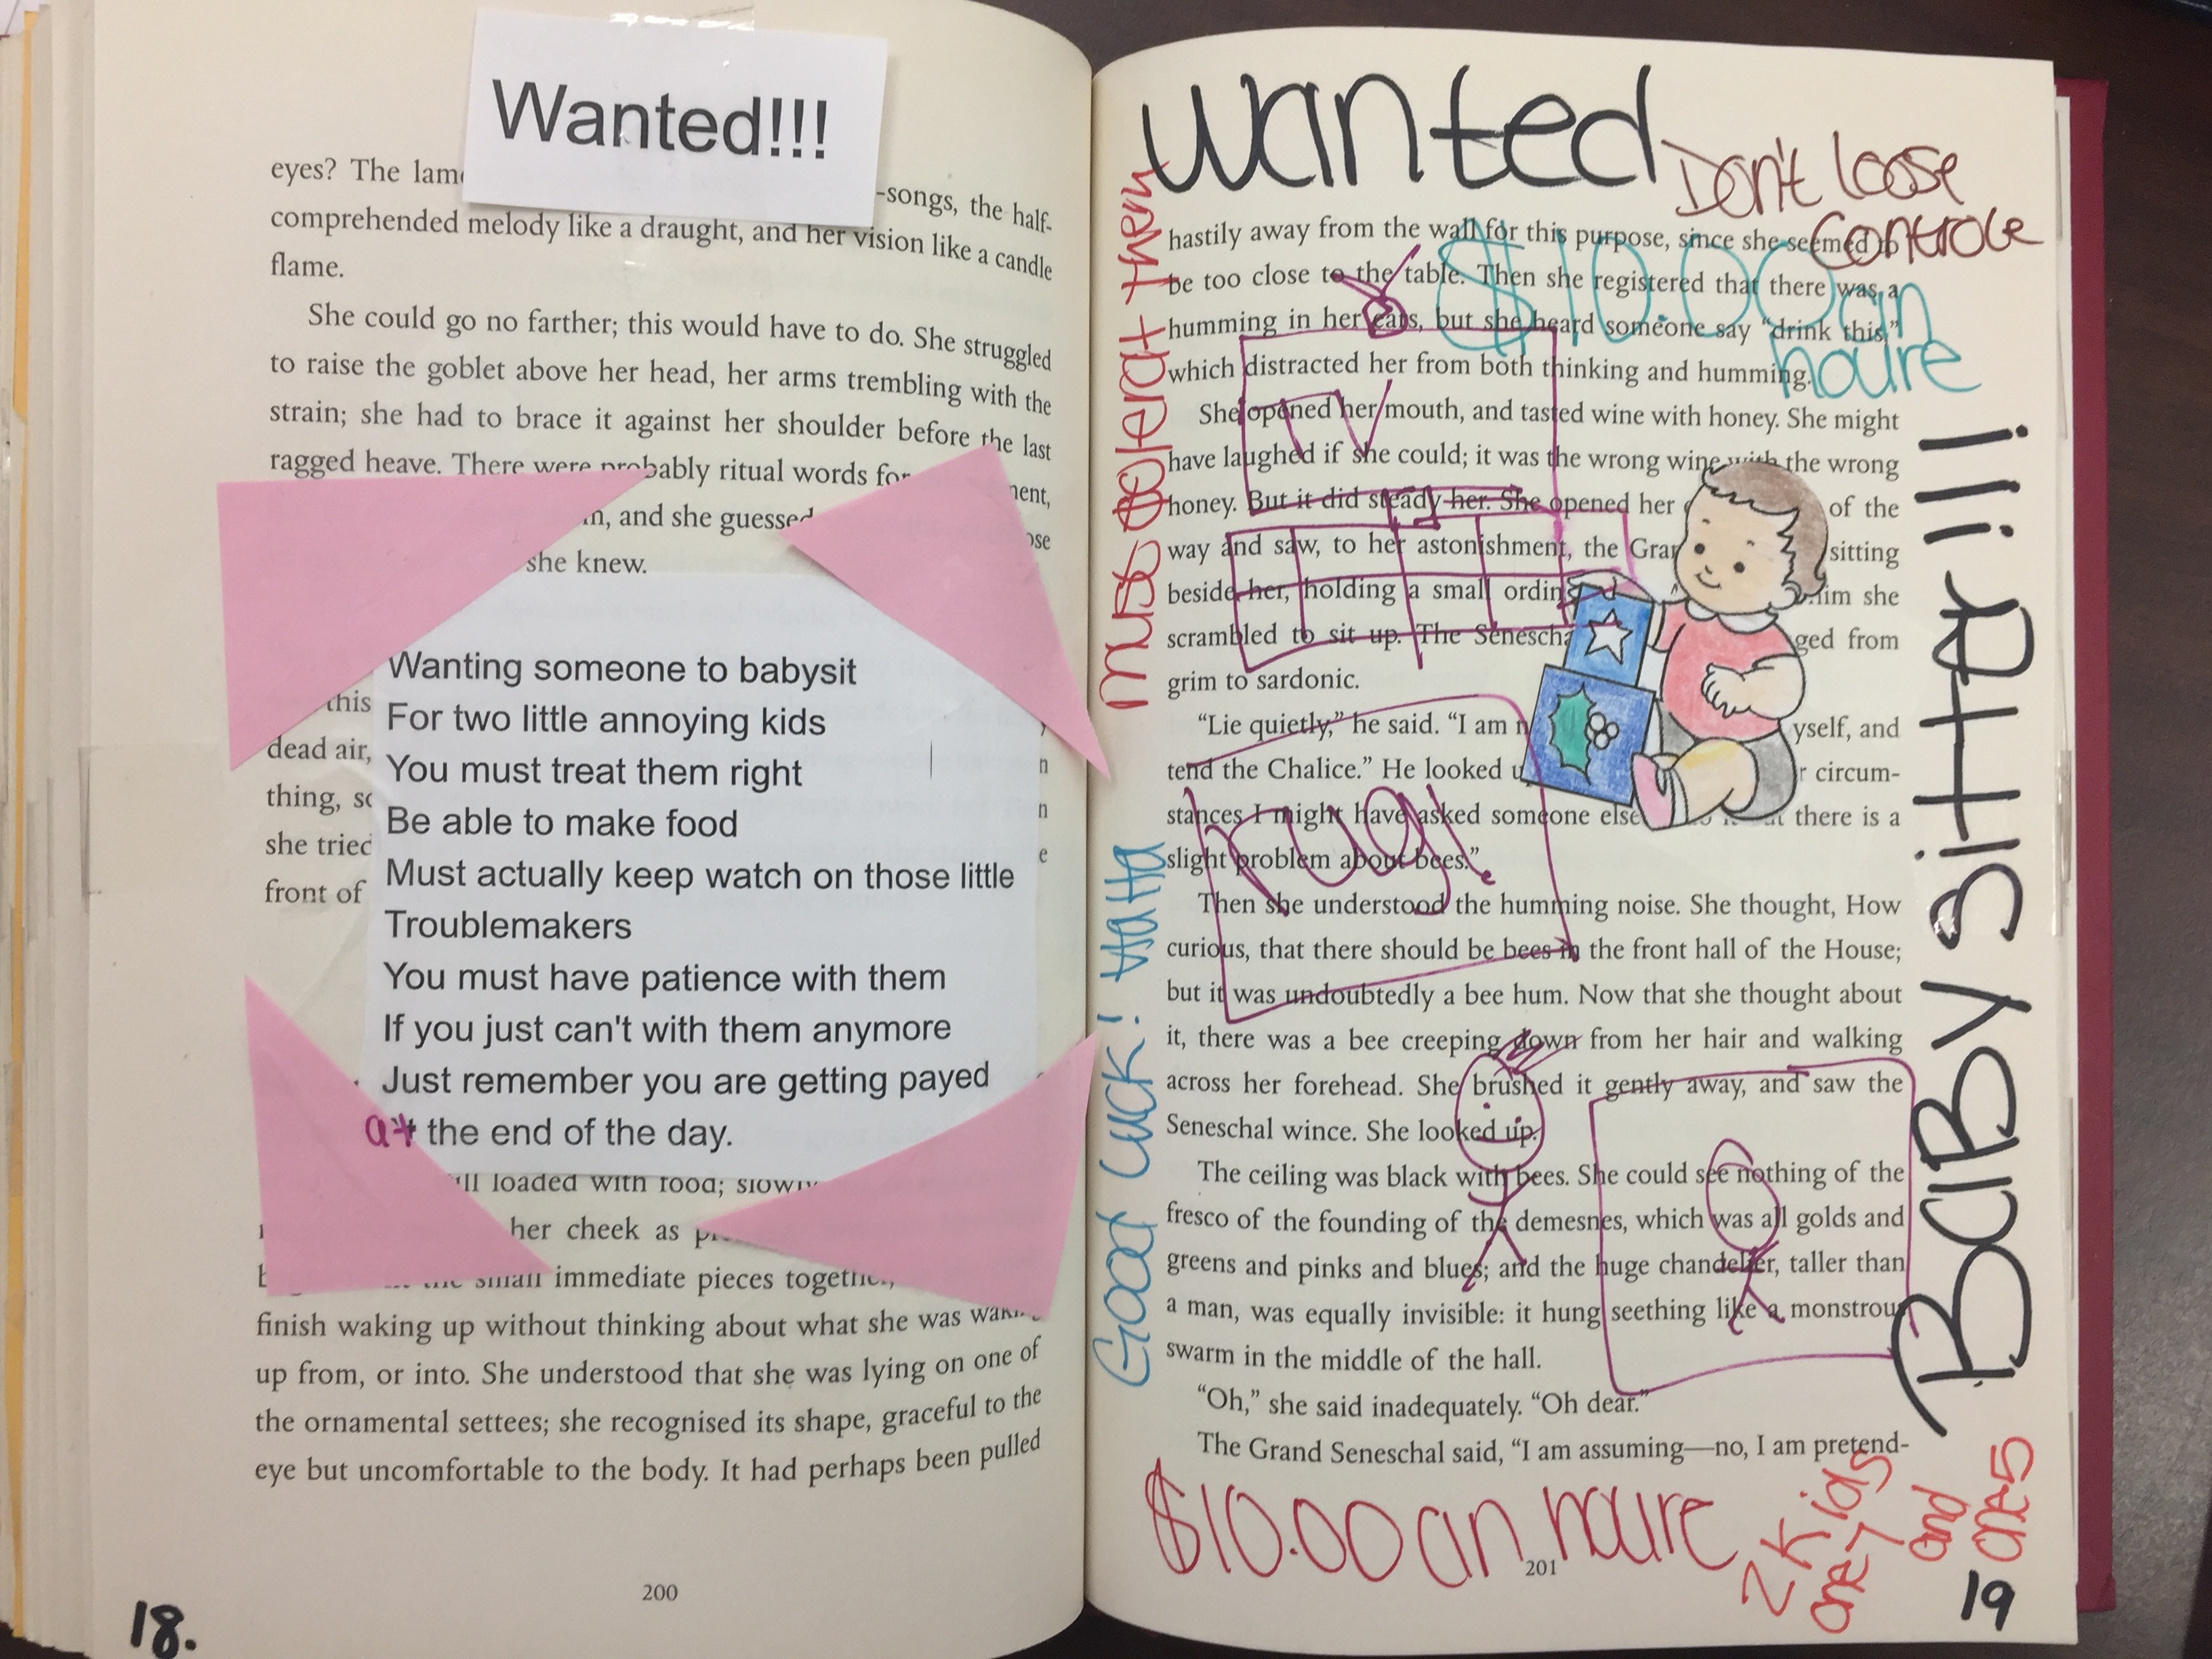 Wanted!!!
eyes? The lam
-songs, the half-
comprehended melody like a draught, and her vision like a candle
flame.
She could go no farther; this would have to do. She struggled
to raise the goblet above her head, her arms trembling with the
strain; she had to brace it against her shoulder before the last
ragged heave. There were probably ritual words for
and she guessed
she knew.
Wanting someone to babysit
For two little annoying kids
You must treat them right
Be able to make food
Must actually keep watch on those little
Troublemakers
You must have patience with them
If you just can't with them anymore
Just remember you are getting payed
at the end of the day.
this
dead air,
thing, so
she tried
front of
loaded with food; slowly
her cheek as
small immediate pieces together,
finish waking up without thinking about what she was waking
up from, or into. She understood that she was lying on one of
the ornamental settees; she recognised its shape, graceful to the
eye but uncomfortable to the body. It had perhaps been pulled
200
18.
wanted
Don't loose
controle
$10.00 an
houre
must tolerat them
Good luck! haha
BaBY sitter!!!
hastily away from the wall for this purpose, since she seemed to
be too close to the table. Then she registered that there was a
humming in her ears, but she heard someone say “drink this,”
which distracted her from both thinking and humming.
She opened her mouth, and tasted wine with honey. She might
have laughed if she could; it was the wrong wine with the wrong
honey. But it did steady her. She opened her of the
way and saw, to her astonishment, the Gran sitting
beside her, holding a small ordin him she
scrambled to sit up. The Senescha ged from
grim to sardonic.
“Lie quietly,” he said. “I am n yself, and
tend the Chalice.” He looked u r circum-
stances I might have asked someone else there is a
slight problem about bees.”
Then she understood the humming noise. She thought, How
curious, that there should be bees in the front hall of the House;
but it was undoubtedly a bee hum. Now that she thought about
it, there was a bee creeping down from her hair and walking
across her forehead. She brushed it gently away, and saw the
Seneschal wince. She looked up.
The ceiling was black with bees. She could see nothing of the
fresco of the founding of the demesnes, which was all golds and
greens and pinks and blues; and the huge chandelier, taller than
a man, was equally invisible: it hung seething like a monstrous
swarm in the middle of the hall.
“Oh,” she said inadequately. “Oh dear.”
The Grand Seneschal said, “I am assuming—no, I am pretend-
TV
rug!
$10.00 an houre
2 kids
one 7
and
one 5
201
19